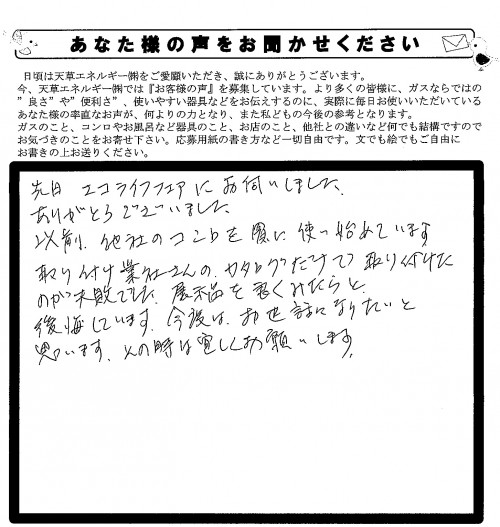 あなた様の声をお聞かせください
日頃は天草エネルギー㈱をご愛願いただき、誠にありがとうございます。
今、天草エネルギー㈱では『お客様の声』を募集しています。より多くの皆様に、ガスならではの
”良さ”や”便利さ”、使いやすい器具などをお伝えするのに、実際に毎日お使いいただいている
あなた様の率直なお声が、何よりの力となり、また私どもの今後の参考となります。
ガスのこと、コンロやお風呂など器具のこと、お店のこと、他社との違いなど何でも結構ですので
お気づきのことをお寄せ下さい。応募用紙の書き方など一切自由です。文でも絵でもご自由に
お書きの上お送りください。
先日 エコライフフェアにお伺いしました、
ありがとうございました
以前、他社のコンロを買い 使い始めています
取り付け業社さんの、カタログだけで 取り付けた
のが失敗でした、展示品を よくみたらと、
後悔しています、今度は、お世話になりたいと
思います、その時は宜しくお願いします、